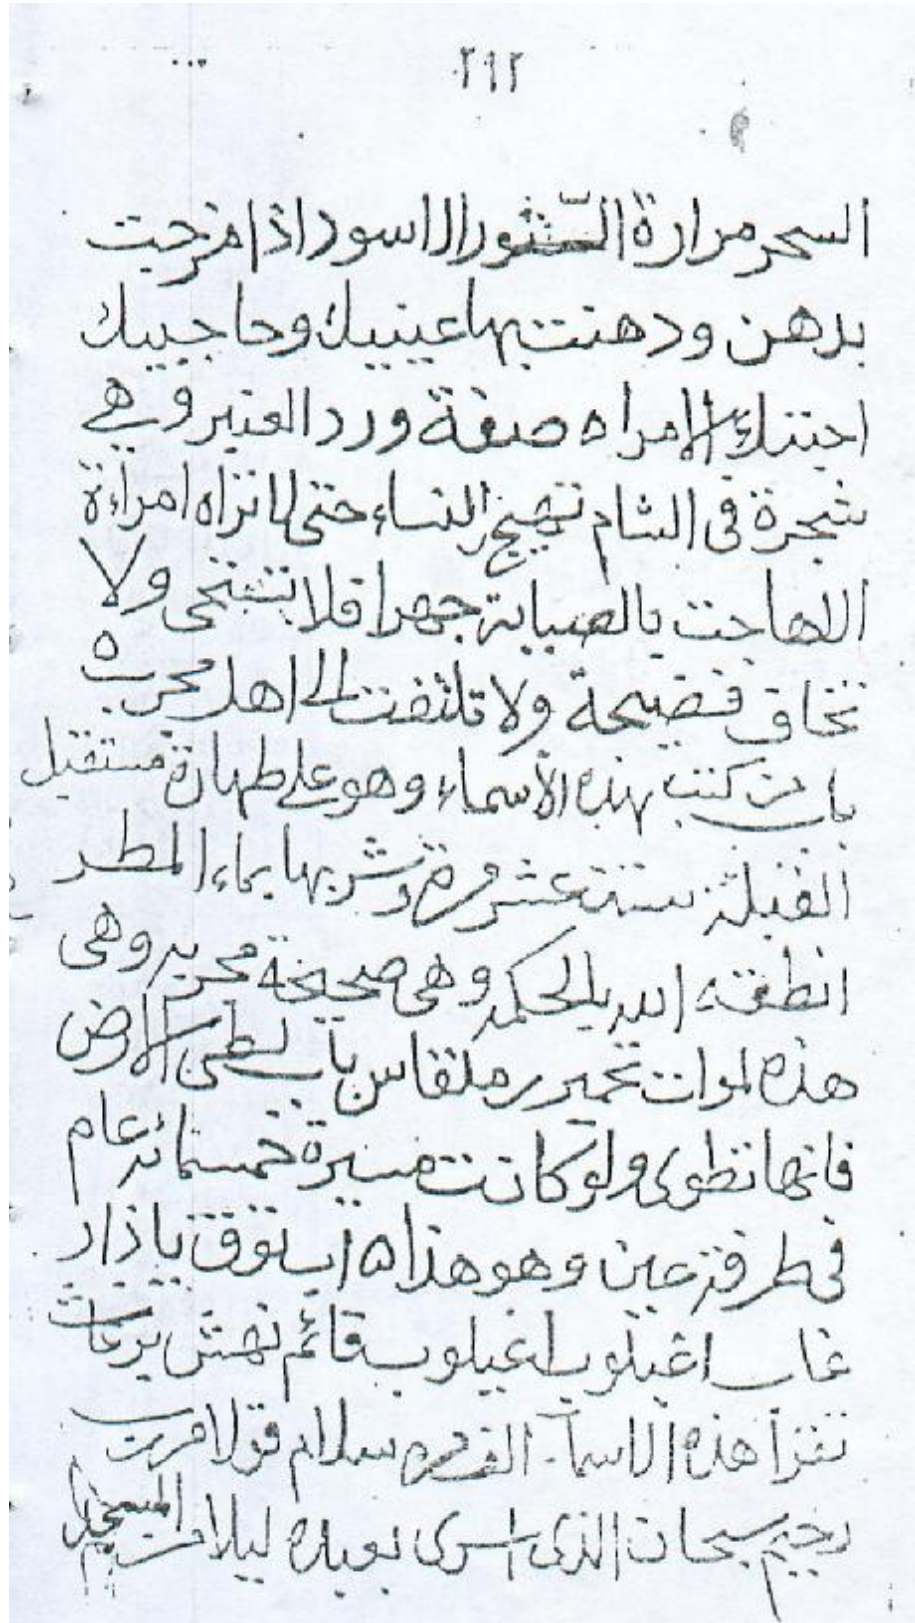 ٢١٢
السحر مرارة السنّور الاسود اذا مزجت
بدهن ودهنت بها عينيك وحاجبيك
احبتك الامراه صفة ورد العنبر وهي
شجرة في الشام تهيج النساء حتى لا تراه امراءة
الا هاجت بالصبابة جهرا فلا تستحى ولا
تخاف فضيحة ولا تلتفت الى اهل مجرب ه
باب من كتب بهذه الأسماء وهو على طهارة مستقبل
القبلة ستة عشر مرة وشربها بماء المطر
انطقه الله بالحكمة وهي صحيحة مجربه وهي
هذه لموات تحمير ر ملقاس باب لطى الارض
فانها تطوى ولو كانت مسيرة خمسمائة عام
في طرفة عين وهو هذا ه اب توق يا ذار
غاب اغيلوب اغيلوب قائم نهش برغات
تقرأ هذه الاسماء الف مره سلام قولا من رب
رحيم سبحان الذى اسرى بعبده ليلا من المسجد